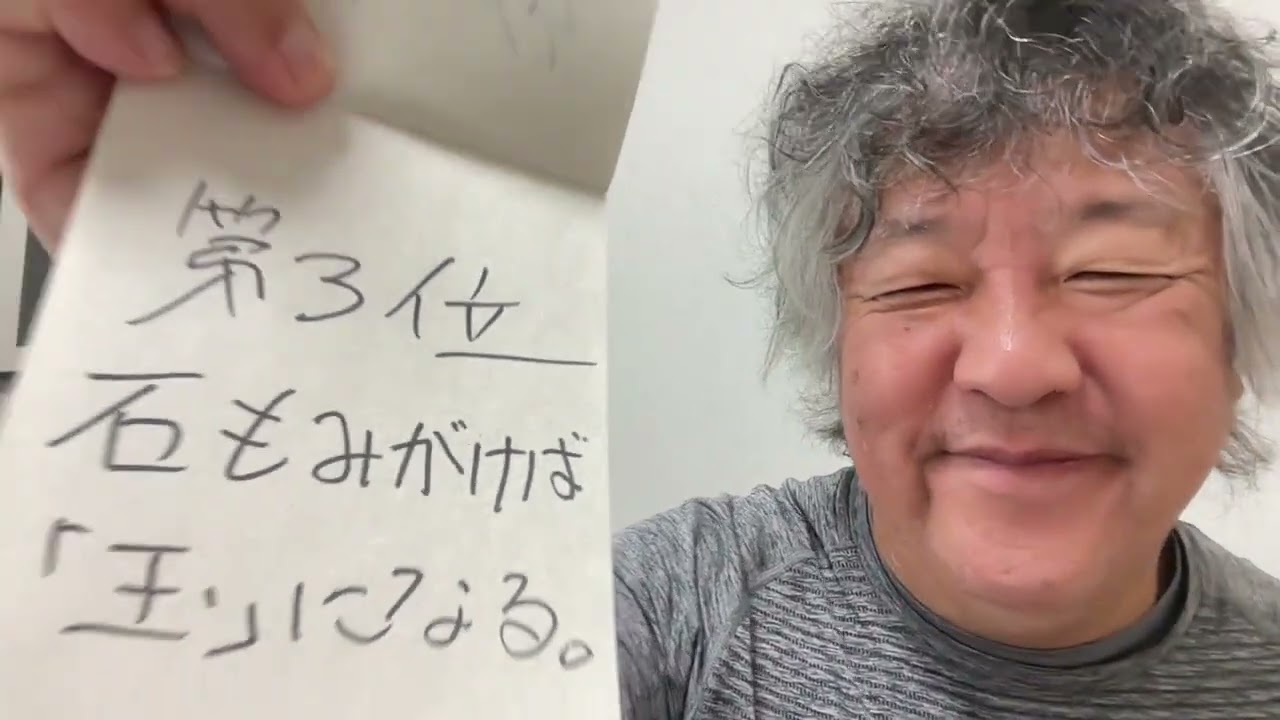 第3位
石もみがけば
「玉」になる。